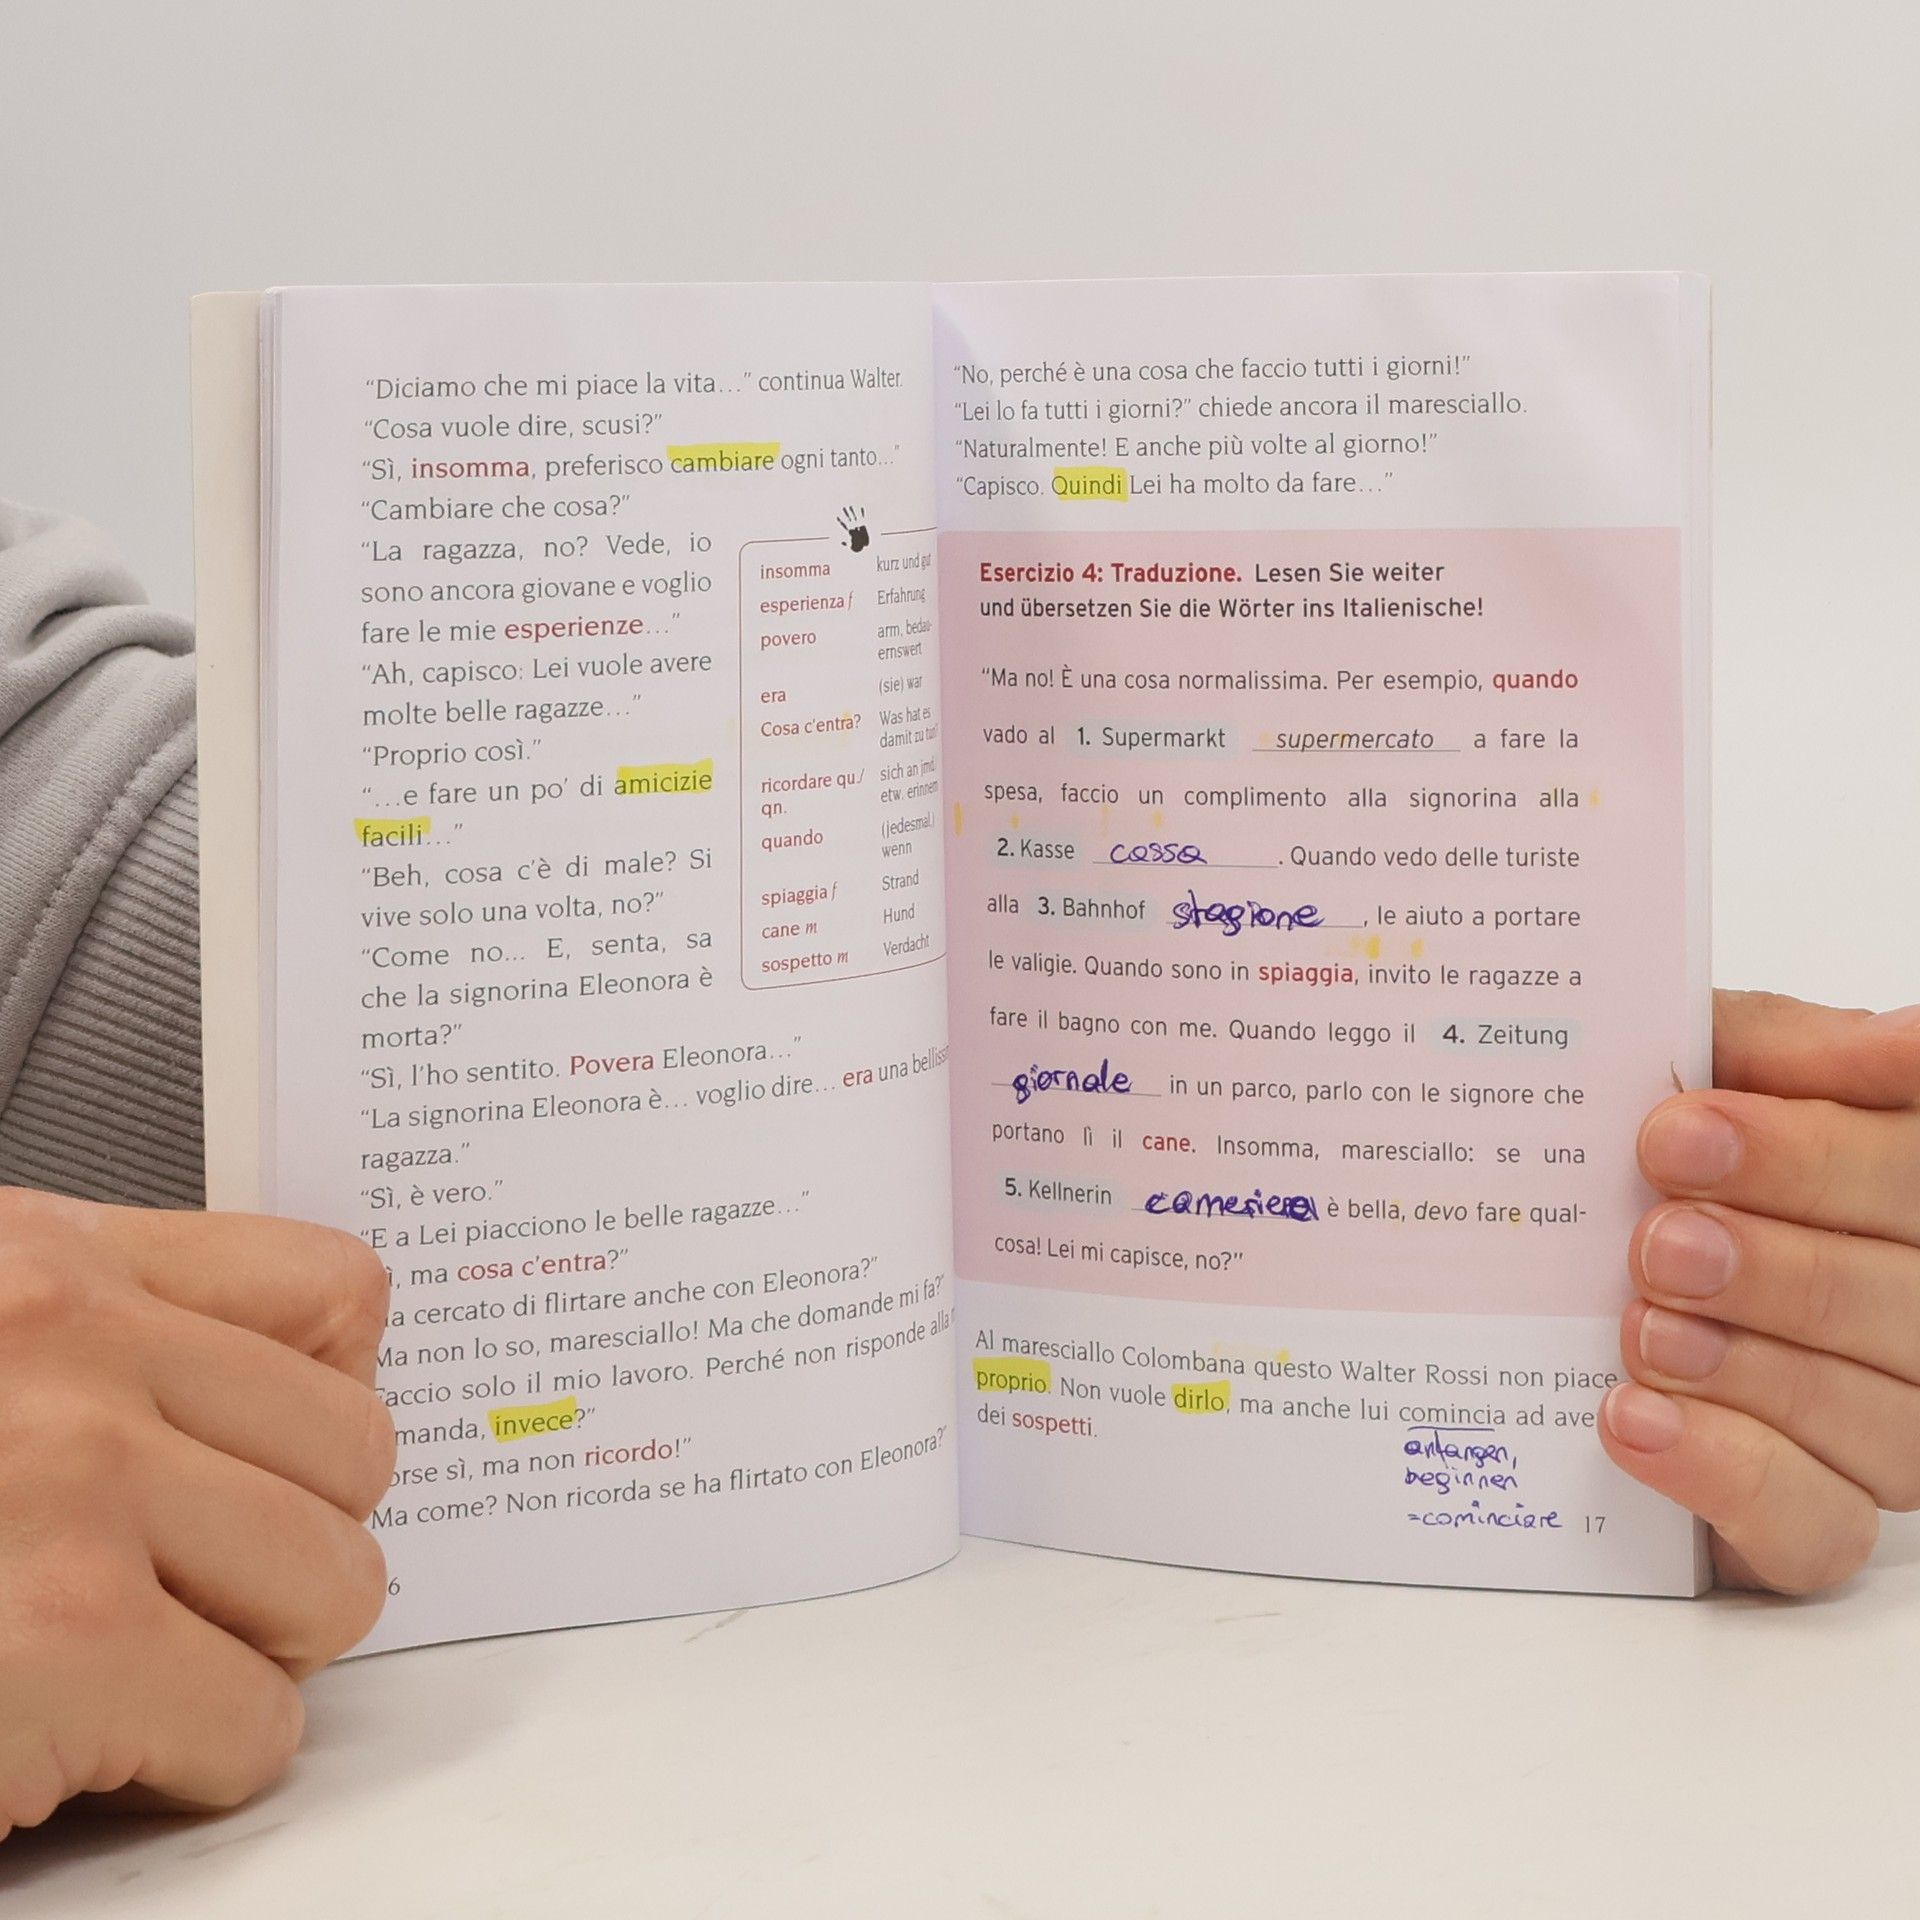 “Diciamo che mi piace la vita…” continua Walter.
“Cosa vuole dire, scusi?”
“Sì, insomma, preferisco cambiare ogni tanto…”
“Cambiare che cosa?”
“La ragazza, no? Vede, io
sono ancora giovane e voglio
fare le mie esperienze…”
“Ah, capisco: Lei vuole avere
molte belle ragazze…”
“Proprio così.”
“…e fare un po’ di amicizie
facili…”
“Beh, cosa c’è di male? Si
vive solo una volta, no?”
“Come no… E, senta, sa
che la signorina Eleonora è
morta?”
“Sì, l’ho sentito. Povera Eleonora…”
“La signorina Eleonora è… voglio dire… era una
ragazza.”
“Sì, è vero.”
“E a Lei piacciono le belle ragazze…”
ì, ma cosa c’entra?”
a cercato di flirtare anche con Eleonora?”
Ma non lo so, maresciallo! Ma che domande mi fa?”
Faccio solo il mio lavoro. Perché non risponde alla
manda, invece?”
orse sì, ma non ricordo!”
Ma come? Non ricorda se ha flirtato con Eleonora?”
6
insomma kurz und gut
esperienza f Erfahrung
povero arm, bedau-
ernswert
era (sie) war
Cosa c’entra? Was hat es
damit zu tun?
ricordare qu./ sich an jmd.
qn. etw. erinnern
quando (jedesmal,)
wenn
spiaggia f Strand
cane m Hund
sospetto m Verdacht
“No, perché è una cosa che faccio tutti i giorni!”
“Lei lo fa tutti i giorni?” chiede ancora il maresciallo.
“Naturalmente! E anche più volte al giorno!”
“Capisco. Quindi Lei ha molto da fare…”
Esercizio 4: Traduzione. Lesen Sie weiter
und übersetzen Sie die Wörter ins Italienische!
“Ma no! È una cosa normalissima. Per esempio, quando
vado al 1. Supermarkt supermercato a fare la
spesa, faccio un complimento alla signorina alla
2. Kasse cassa . Quando vedo delle turiste
alla 3. Bahnhof stagione , le aiuto a portare
le valigie. Quando sono in spiaggia, invito le ragazze a
fare il bagno con me. Quando leggo il 4. Zeitung
giornale in un parco, parlo con le signore che
portano lì il cane. Insomma, maresciallo: se una
5. Kellnerin cameriera è bella, devo fare qual-
cosa! Lei mi capisce, no?”
Al maresciallo Colombana questo Walter Rossi non piace
proprio. Non vuole dirlo, ma anche lui comincia ad ave
dei sospetti.
anfangen,
beginnen
=cominciare
17